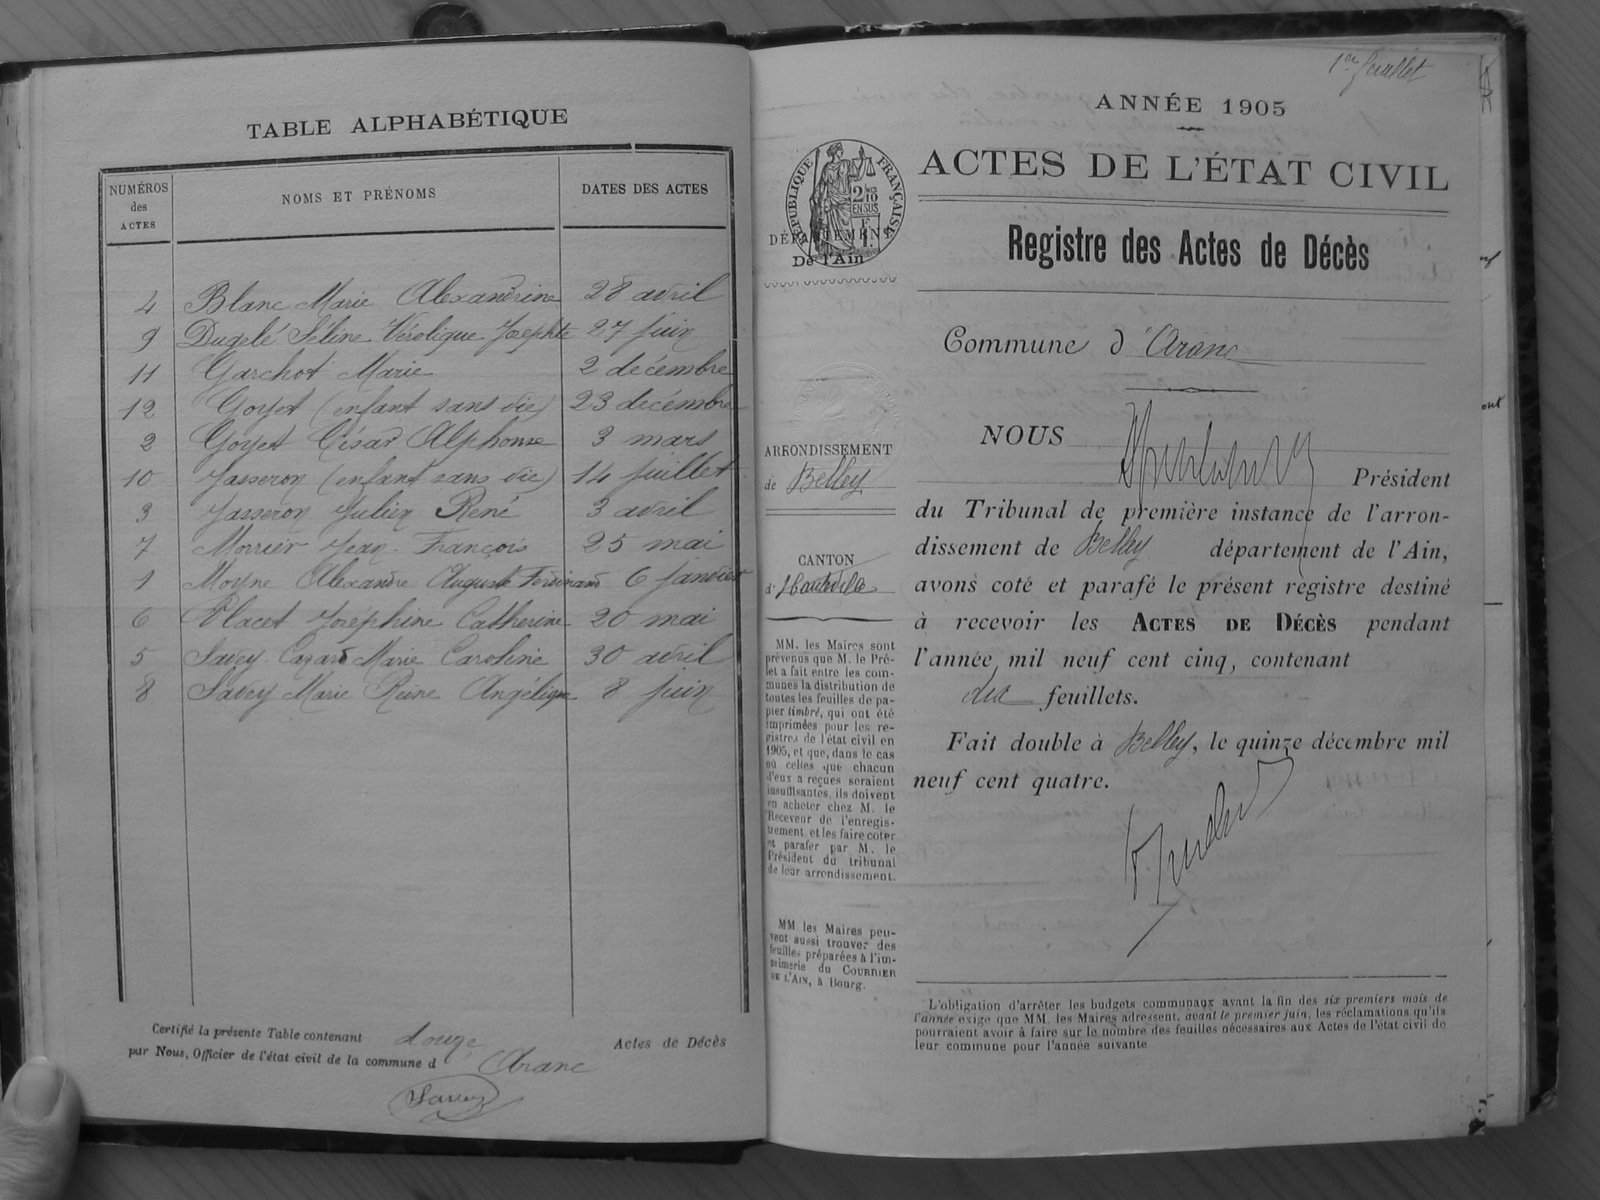 TABLE ALPHABÉTIQUE
NUMÉROS des ACTES
NOMS ET PRÉNOMS
DATES DES ACTES
4 Blanc Marie Alexandrine 28 avril
9 Dugelé Séline Josephte 27 juin
11 Garchot Marie 2 décembre
12 Goyet (enfant sans vie) 23 décembre
2 Goyet César Alphonse 3 mars
10 Jasseron (enfant sans vie) 14 juillet
3 Jasseron Julien René 3 avril
7 Morrier Jean François 25 mai
1 Moyne Alexandre Auguste Ferdinand 6 janvier
6 Placet Joséphine Catherine 20 mai
5 Savey Cazard Marie Caroline 30 avril
8 Savey Marie Reine Angélique 8 juin
Certifié la présente Table contenant douze Actes de Décès
par Nous, Officier de l'état civil de la commune d Aranc
Savey
1er feuillet
ANNÉE 1905
ACTES DE L'ÉTAT CIVIL
RÉPUBLIQUE FRANÇAISE
2/10 EN SUS
DÉPARTEMENT
De l'Ain
Registre des Actes de Décès
Commune d'Aranc
ARRONDISSEMENT
de Belley
CANTON
d'Hauteville
MM. les Maires sont
prévenus que M. le Pré-
fet a fait entre les com-
munes la distribution de
toutes les feuilles de pa-
pier timbré, qui ont été
imprimées pour les re-
gistres de l'état civil en
1905, et que, dans le cas
où celles que chacun
d'eux a reçues seraient
insuffisantes, ils doivent
en acheter chez M. le
Receveur de l'enregis-
trement et les faire coter
et parafer par M. le
Président du tribunal
de leur arrondissement.
MM les Maires peu-
vent aussi trouver des
feuilles préparées à l'im-
primerie du COURRIER
DE L'AIN, à Bourg.
NOUS
Président
du Tribunal de première instance de l'arron-
dissement de Belley département de l'Ain,
avons coté et parafé le présent registre destiné
à recevoir les ACTES DE DÉCÈS pendant
l'année mil neuf cent cinq, contenant
dix feuillets.
Fait double à Belley, le quinze décembre mil
neuf cent quatre.
L'obligation d'arrêter les budgets communaux avant la fin des six premiers mois de
l'année exige que MM. les Maires adressent, avant le premier juin, les réclamations qu'ils
pourraient avoir à faire sur le nombre des feuilles nécessaires aux Actes de l'état civil de
leur commune pour l'année suivante